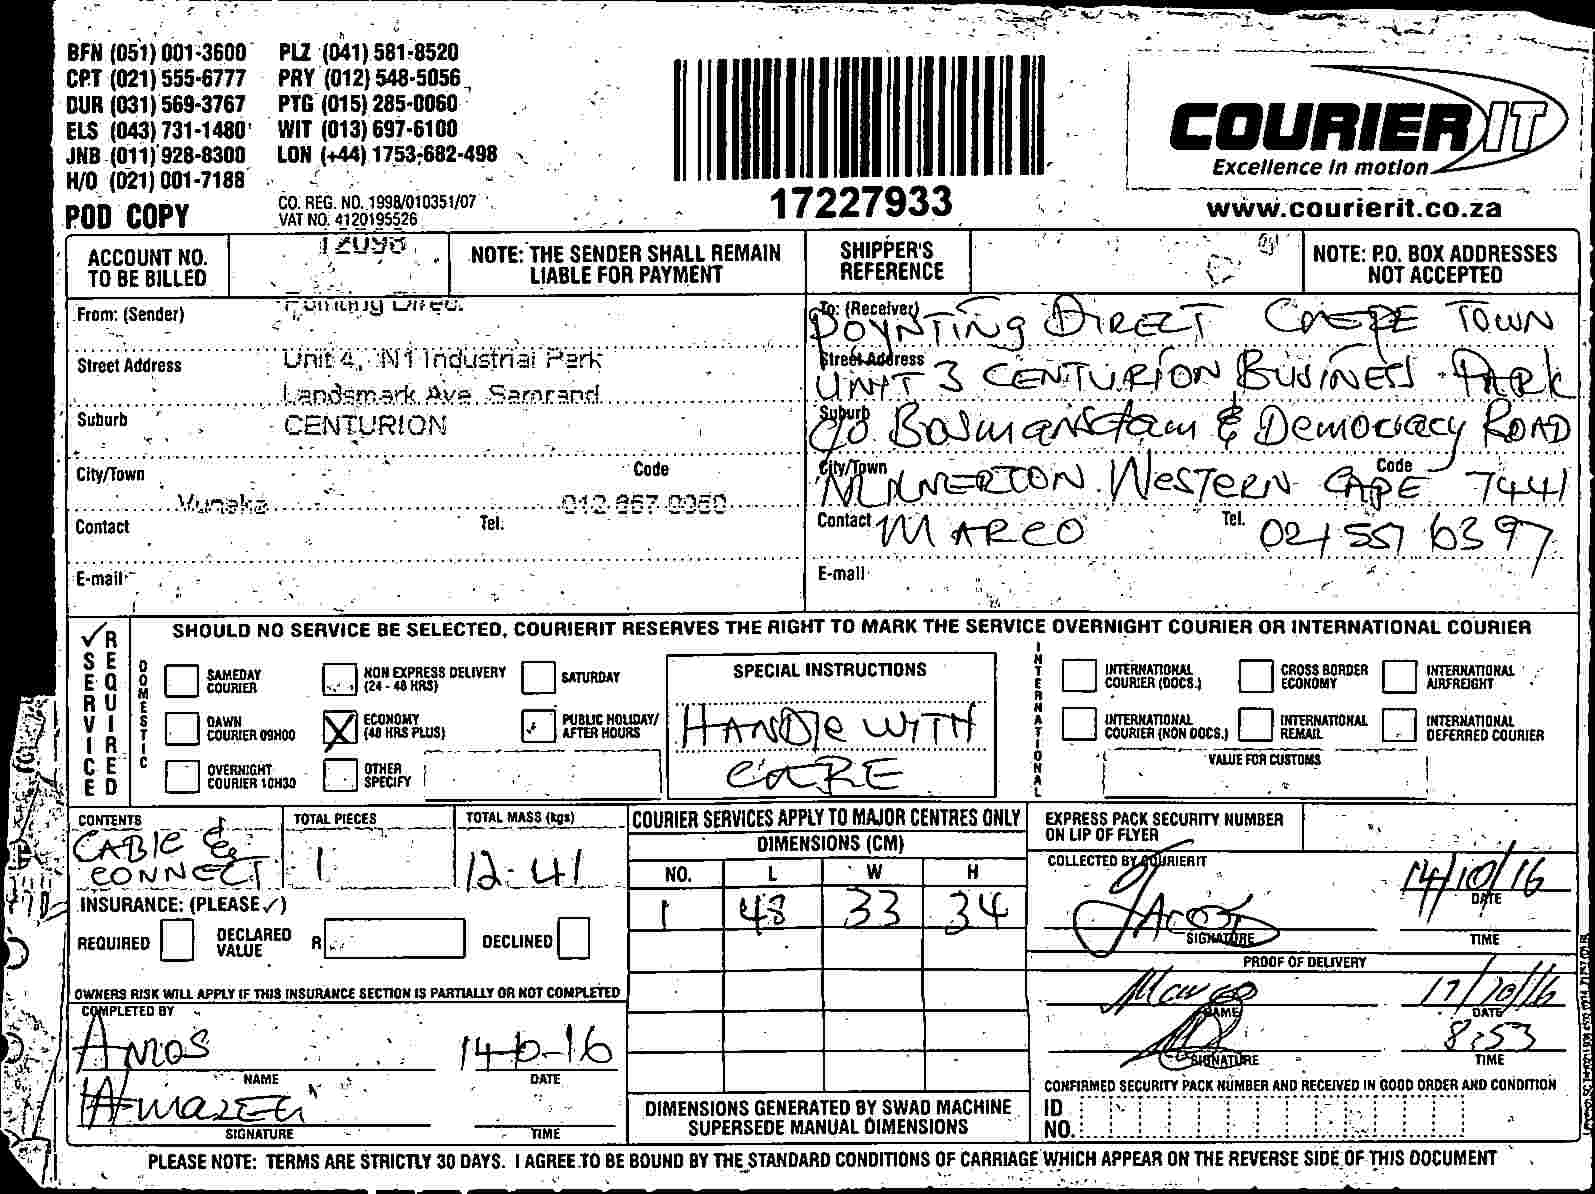 BFN (051) 001-3600 PLZ (041) 581-8520
CPT (021) 555-6777 PRY (012) 548-5056
DUR (031) 569-3767 PTG (015) 285-0060
ELS (043) 731-1480 WIT (013) 697-6100
JNB (011) 928-8300 LON (+44) 1753-682-498
H/O (021) 001-7188
POD COPY
CO. REG. NO. 1998/010351/07
VAT NO. 4120195526
17227933
COURIER IT
Excellence in motion
www.courierit.co.za
ACCOUNT NO. TO BE BILLED
12098
NOTE: THE SENDER SHALL REMAIN LIABLE FOR PAYMENT
SHIPPER'S REFERENCE
NOTE: P.O. BOX ADDRESSES NOT ACCEPTED
From: (Sender)
Street Address Unit 4, N1 Industrial Park
Landsmark Ave, Samrand
Suburb CENTURION
City/Town Code
Contact Tel.
E-mail
To: (Receiver) POYNTING DIRECT CAPE TOWN
Street Address UNIT 3 CENTURION BUSINESS PARK
Suburb c/o & Democracy ROAD
City/Town WESTERN CAPE Code 7441
Contact MARCO Tel. 021 551 6397
E-mail
SHOULD NO SERVICE BE SELECTED, COURIERIT RESERVES THE RIGHT TO MARK THE SERVICE OVERNIGHT COURIER OR INTERNATIONAL COURIER
✓ SERVICE REQUIRED
DOMESTIC
SAMEDAY COURIER
NON EXPRESS DELIVERY (24 - 48 HRS)
SATURDAY
DAWN COURIER 09H00
X ECONOMY (48 HRS PLUS)
PUBLIC HOLIDAY/ AFTER HOURS
OVERNIGHT COURIER 10H30
OTHER SPECIFY
SPECIAL INSTRUCTIONS
HANDle WITH
CARE
INTERNATIONAL
INTERNATIONAL COURIER (DOCS.)
CROSS BORDER ECONOMY
INTERNATIONAL AIRFREIGHT
INTERNATIONAL COURIER (NON DOCS.)
INTERNATIONAL REMAIL
INTERNATIONAL DEFERRED COURIER
VALUE FOR CUSTOMS
CONTENTS
CABlE &
CONNECT
TOTAL PIECES
1
TOTAL MASS (kgs)
12.41
INSURANCE: (PLEASE ✓)
REQUIRED DECLARED VALUE R DECLINED
OWNERS RISK WILL APPLY IF THIS INSURANCE SECTION IS PARTIALLY OR NOT COMPLETED
COMPLETED BY
AMOS
NAME DATE
SIGNATURE TIME
COURIER SERVICES APPLY TO MAJOR CENTRES ONLY
DIMENSIONS (CM)
NO. L W H
1 48 33 34
DIMENSIONS GENERATED BY SWAD MACHINE
SUPERSEDE MANUAL DIMENSIONS
EXPRESS PACK SECURITY NUMBER
ON LIP OF FLYER
COLLECTED BY COURIERIT
14/10/16
DATE
SIGNATURE TIME
PROOF OF DELIVERY
17/10/16
NAME DATE
8:53
SIGNATURE TIME
CONFIRMED SECURITY PACK NUMBER AND RECEIVED IN GOOD ORDER AND CONDITION
ID NO.
PLEASE NOTE: TERMS ARE STRICTLY 30 DAYS. I AGREE TO BE BOUND BY THE STANDARD CONDITIONS OF CARRIAGE WHICH APPEAR ON THE REVERSE SIDE OF THIS DOCUMENT